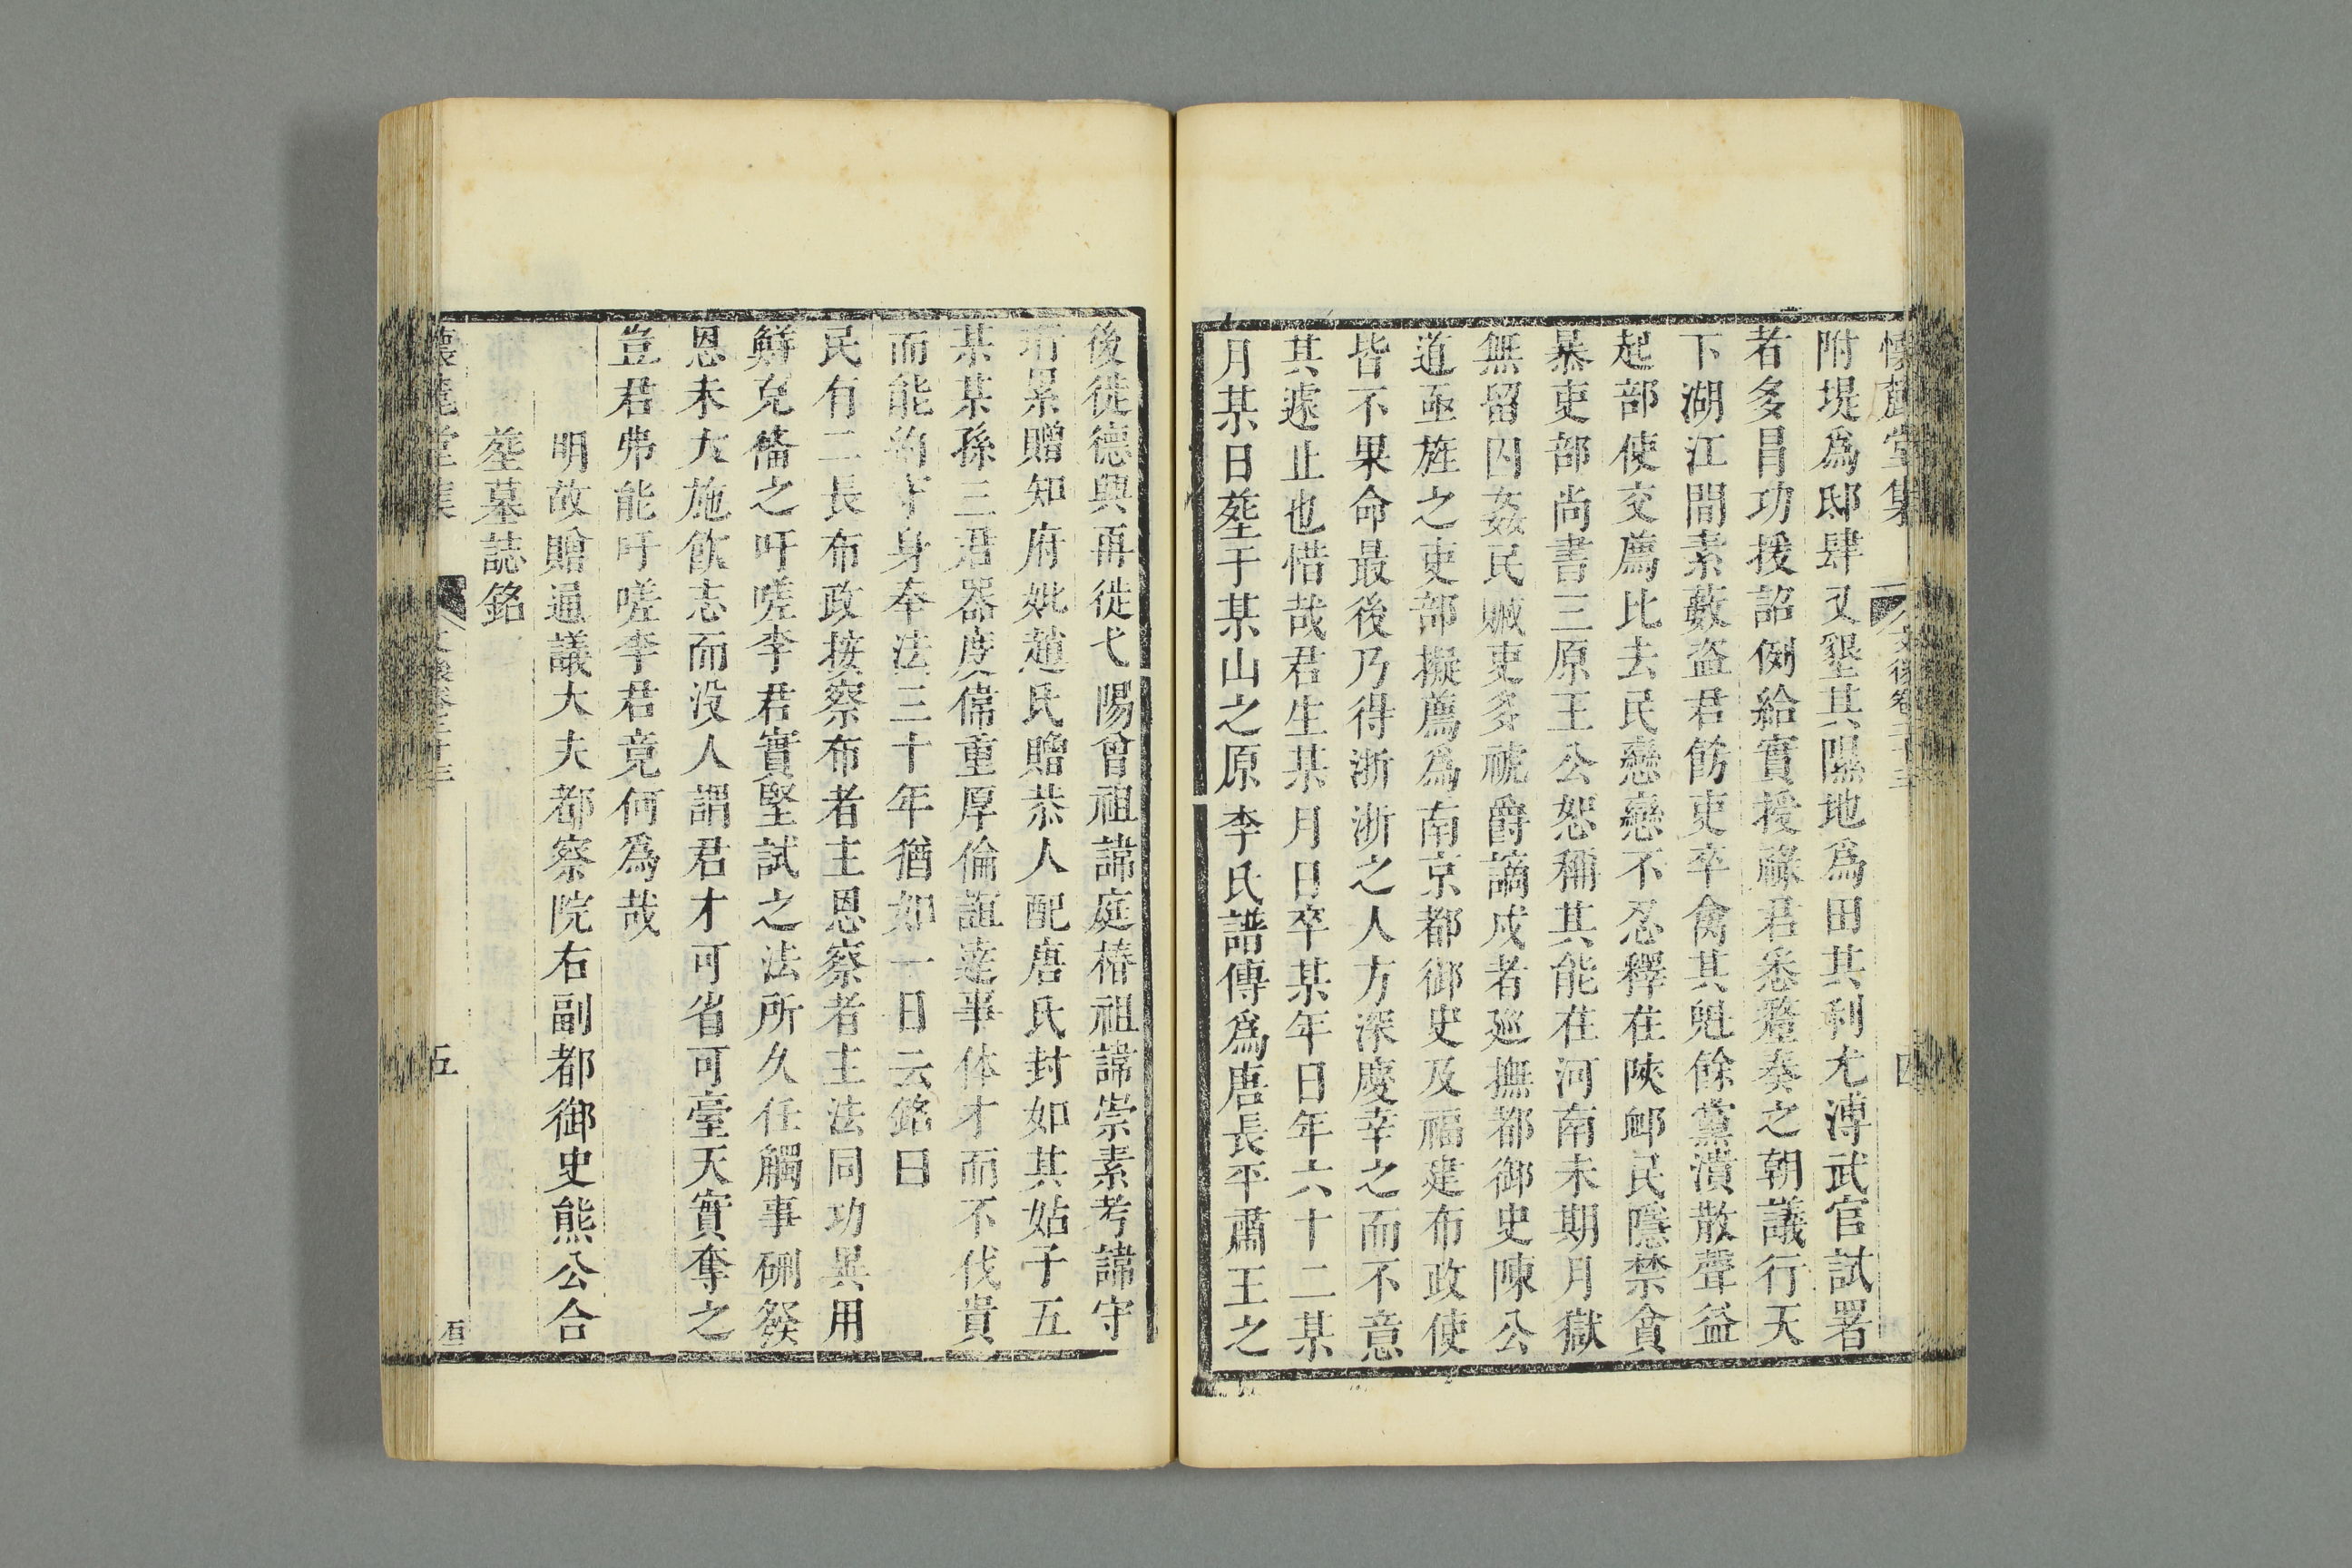 懷麓堂集 文後卷二十三 四
附堤為邸肆又墾其隰地為田其利尤溥武官試署
者多冒功援詔例給實授祿君悉釐奏之朝議行天
下湖江間素藪盗君飭吏卒禽其魁餘黨潰散聲益
起部使交薦比去民戀戀不忍釋在陜卹民隱禁貪
暴吏部尚書三原王公恕稱其能在河南未期月獄
無留囚姦民贓吏多禠爵謫戍者廵撫都御史陳公
道亟旌之吏部擬薦為南京都御史及福建布政使
皆不果命最後乃得浙浙之人方深慶幸之而不意
其遽止也惜哉君生某月日卒某年日年六十二某
月某日塟于某山之原李氏譜傳為唐長平肅王之
後徙德興再徙弋陽曾祖諱庭椿祖諱崇素考諱守
珩累贈知府妣趙氏贈恭人配唐氏封如其姑子五
某某孫三君器度偉重厚倫誼達事体才而不伐貴
而能約守身奉法三十年猶如一日云銘曰
民有二長布政按察布者主恩察者主法同功異用
鮮克備之吁嗟李君實堅試之法所久任觸事硎發
恩未大施飲志而没人謂君才可省可臺天實奪之
豈君弗能吁嗟李君竟何為哉
明故贈通議大夫都察院右副都御史熊公合
塟墓誌銘
懷麓堂集 文後卷二十三 五 石